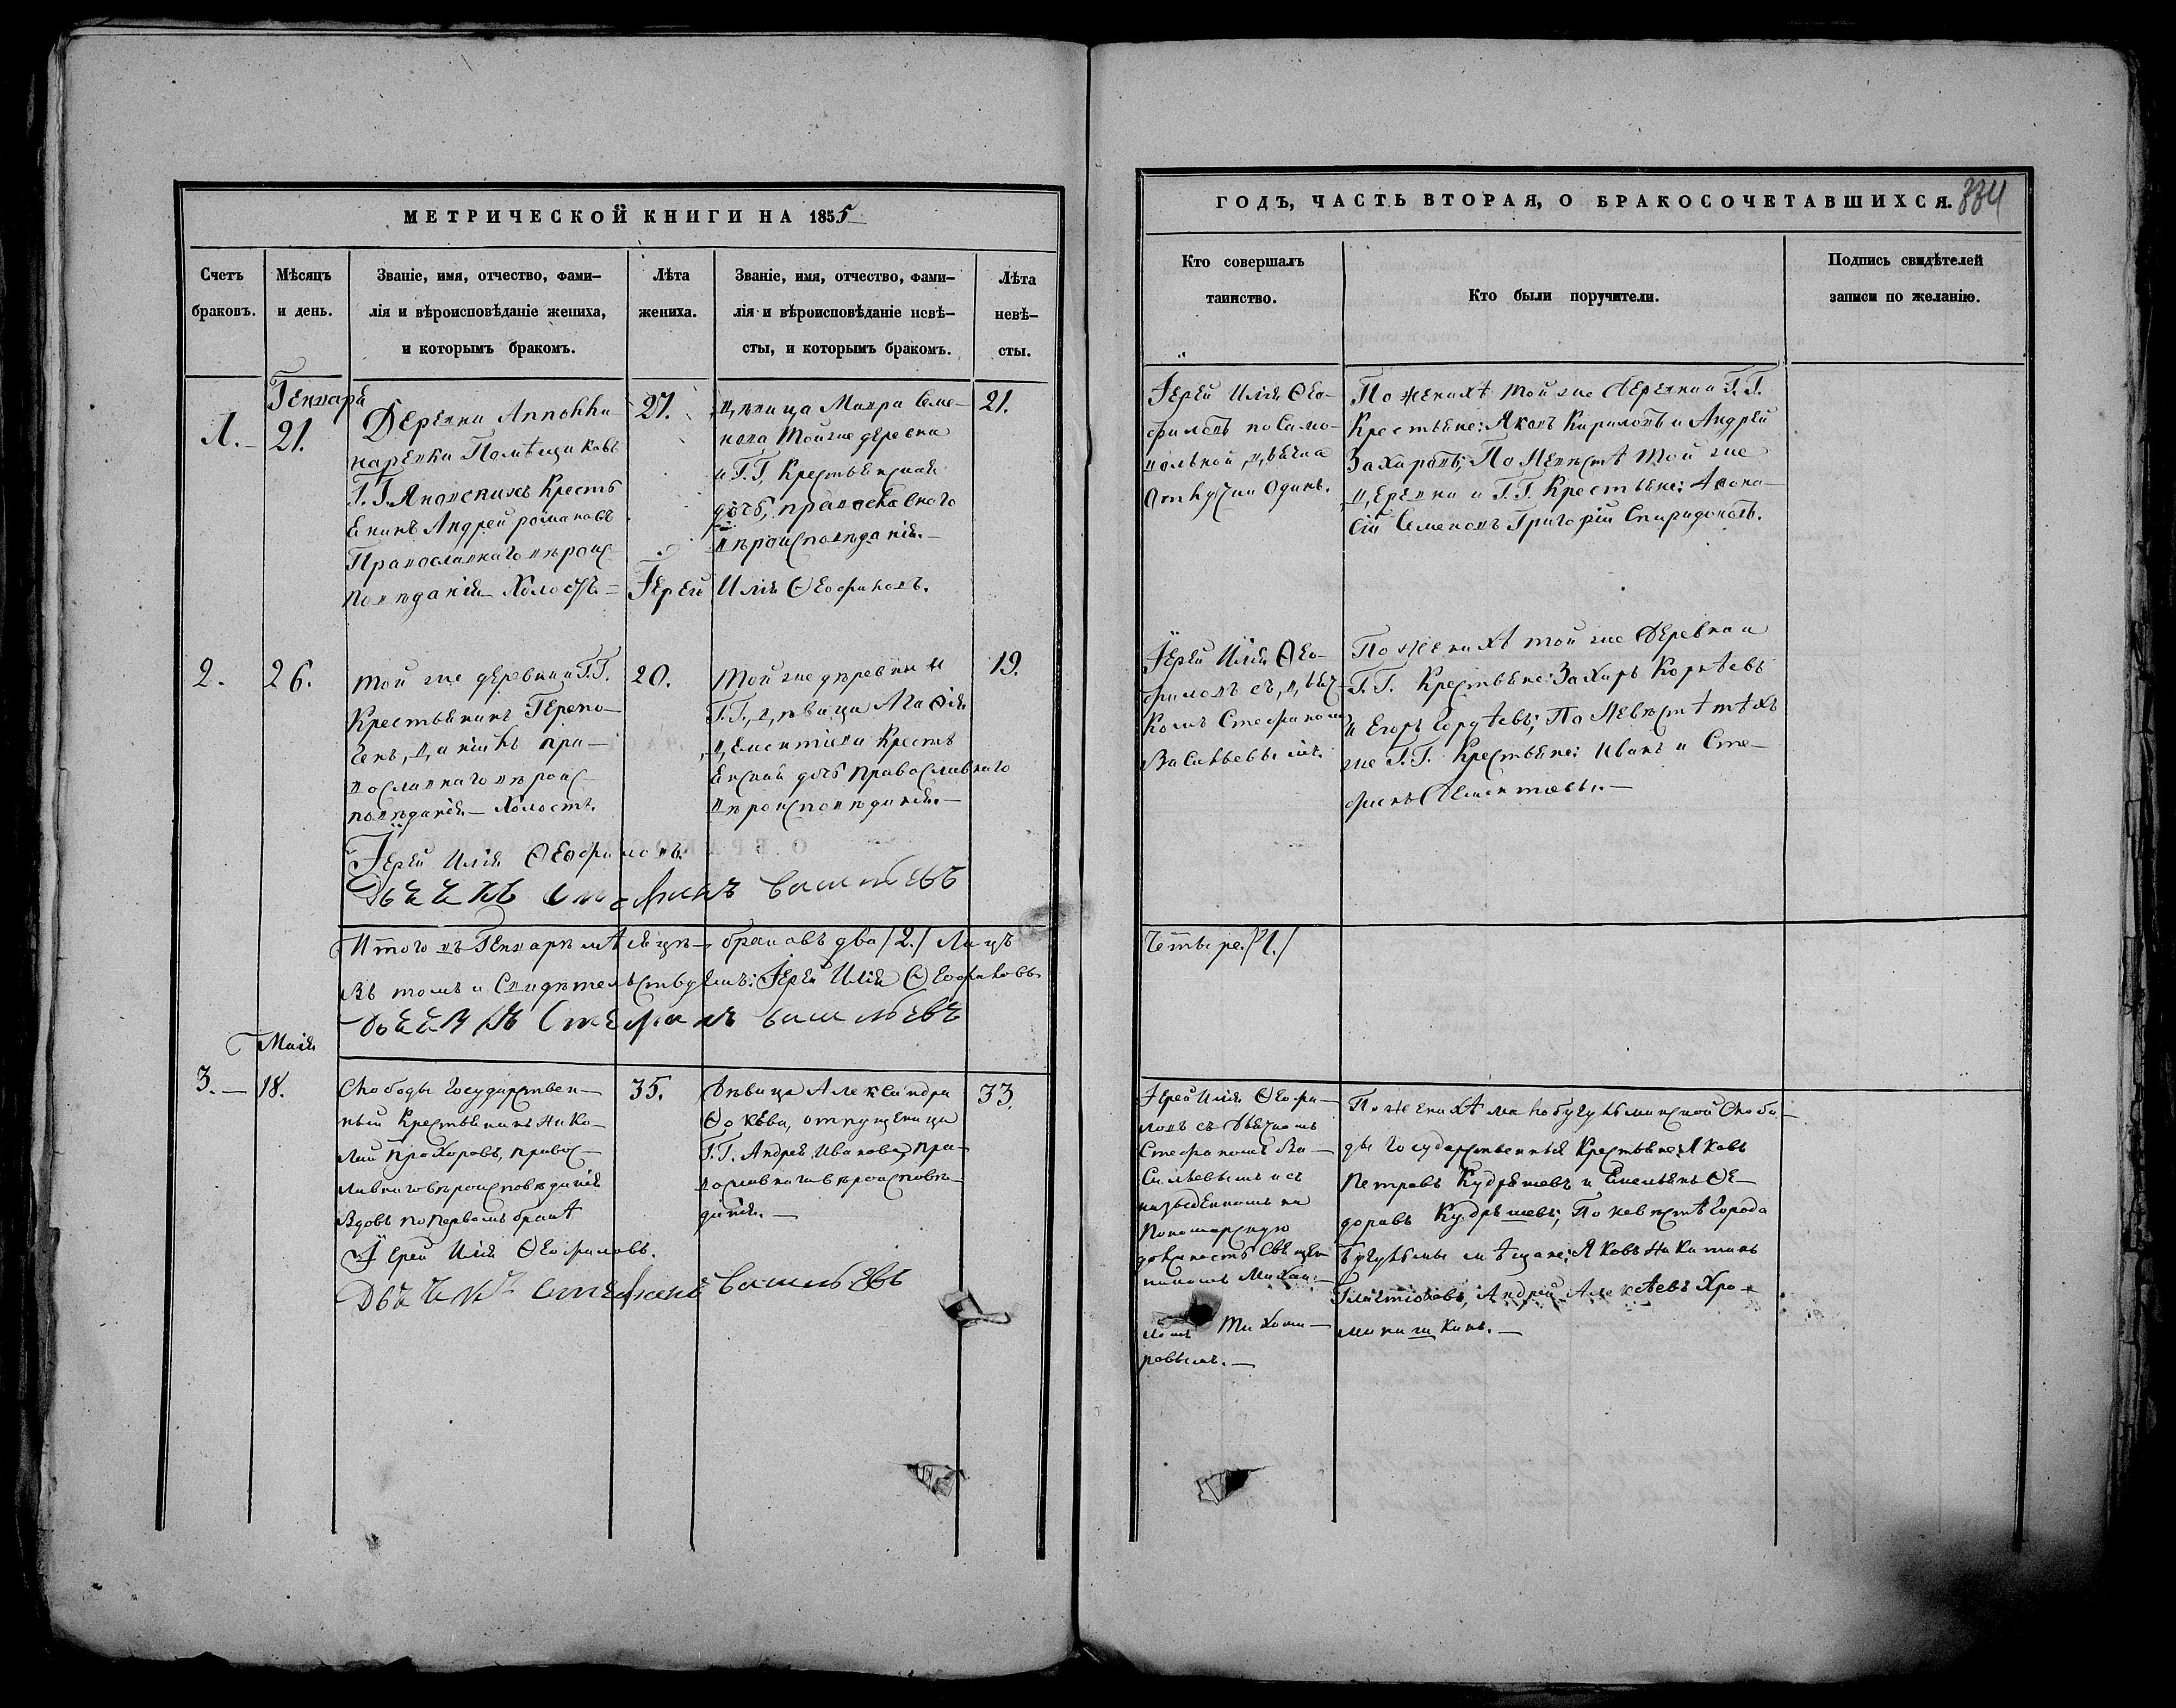 МЕТРИЧЕСКОЙ КНИГИ НА 1855
Счетъ
браковъ.
Мѣсяцъ
и день.
Званіе, имя, отчество, фами-
лія и вѣроисповѣданіе жениха,
и которымъ бракомъ.
Лѣта
жениха.
Званіе, имя, отчество, фами-
лія и вѣроисповѣданіе невѣ-
сты, и которымъ бракомъ.
Лѣта
невѣ-
сты.
Генваря
1.
21.
Деревни
Помѣщиковъ
Г.Г. Кресть
янинъ Андрей Романовъ
Православнаго вѣроис-
повѣданія Холостъ.
27.
дѣвица Мавра Семе-
нова Той же деревни
и Г.Г. Крестьянская
дочь, православнаго
вѣроисповѣданія.
21.
Іерей Илія Ѳеофиловъ.
2.
26.
Той же деревни и Г.Г.
Крестьянинъ
пра-
вославнаго вѣроис-
повѣданія Холостъ.
20.
Той же деревни и
Г.Г. дѣвица Агафія
Дементіева Кресть
янская дочь Православнаго
вѣроисповѣданія.
19.
Іерей Илія Ѳеофиловъ.
Дьячекъ Стефанъ Васильевъ
Итого въ Генварѣ мѣсяцѣ браковъ два /2./ Лицъ
Въ томъ и Свидѣтельствуемъ: Іерей Илія Ѳеофиловъ.
Дьячекъ Стефанъ Васильевъ
Маія
3.
18.
Слободы Государствен-
ный Крестьянинъ Нико-
лай Прохоровъ, правос-
лавнаго вѣроисповѣданія
Вдовъ по первомъ бракѣ
35.
Дѣвица Александра
отпущеница
Г.Г. Андрея Иванова, Пра-
вославнаго вѣроисповѣ-
данія.
33.
Іерей Илія Ѳеофиловъ.
Дьячекъ Стефанъ Васильевъ
ГОДЪ, ЧАСТЬ ВТОРАЯ, О БРАКОСОЧЕТАВШИХСЯ.
334
Кто совершалъ
таинство.
Кто были поручители.
Подпись свидѣтелей
записи по желанію.
Іерей Илія Ѳео-
филовъ по Само-
вольной дьячка
Отлучки Одинъ.
По женихѣ той же деревни и Г.Г.
Крестьяне: Яковъ Кириловъ и Андрей
Захаровъ; По Невѣстѣ Той же
деревни и Г.Г. Крестьяне: Афона-
сій Семеновъ Григорій Спиридоновъ.
Іерей Илія Ѳео-
филовъ съ дьяч-
комъ Стефаномъ
Васильевымъ.
По женихѣ той же Деревни и
Г.Г. Крестьяне: Захаръ Корнѣевъ
и Егоръ; По Невѣстѣ тѣхъ
же Г.Г. Крестьяне: Иванъ и Сте-
фанъ Дементіевы.
Четыре. /4./
Іерей Илія Ѳеофи-
ловъ съ дьячкомъ
Стефаномъ Ва-
сильевымъ и съ
на
Пономарскую
должность
Тихоми-
ровымъ.
По женихѣ Слобо-
ды Государственныя Крестьяне: Яковъ
Петровъ Кудряшевъ и Емельянъ Ѳе-
доровъ Кудряшевъ; По невѣстѣ Города
Бугульмы мѣщане: Яковъ Никитинъ
Андрей Алексѣевъ